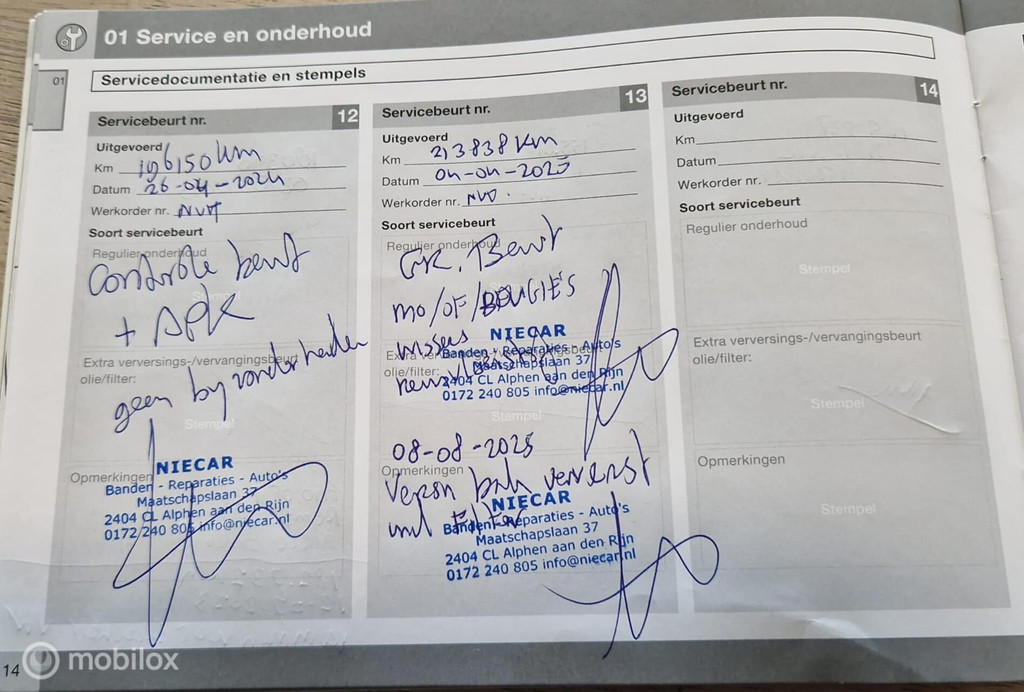 01 Service en onderhoud
01
Servicedocumentatie en stempels
Servicebeurt nr. 12
Uitgevoerd
Km 196150 km
Datum 26-04-2024
Werkorder nr. NVT
Soort servicebeurt
Regulier onderhoud
Controle beurt
+ APK
Extra verversings-/vervangingsbeurt
olie/filter:
geen byzonderheden
Stempel
Opmerkingen
NIECAR
Banden - Reparaties - Auto's
Maatschapslaan 37
2404 CL Alphen aan den Rijn
0172 240 805 info@niecar.nl
Servicebeurt nr. 13
Uitgevoerd
Km 213838 km
Datum 04-04-2025
Werkorder nr.
Soort servicebeurt
Regulier onderhoud
GR. Beurt
mo/OF/BOUGIE'S
wissers
NIECAR
Extra
Banden - Reparaties - Auto's
olie/filter:
Maatschapslaan 37
2404 CL Alphen aan den Rijn
0172 240 805 info@niecar.nl
Stempel
08-08-2025
Opmerkingen
bak ververst
NIECAR
filter
Banden - Reparaties - Auto's
Maatschapslaan 37
2404 CL Alphen aan den Rijn
0172 240 805 info@niecar.nl
Servicebeurt nr. 14
Uitgevoerd
Km
Datum
Werkorder nr.
Soort servicebeurt
Regulier onderhoud
Stempel
Extra verversings-/vervangingsbeurt
olie/filter:
Stempel
Opmerkingen
Stempel
14
mobilox